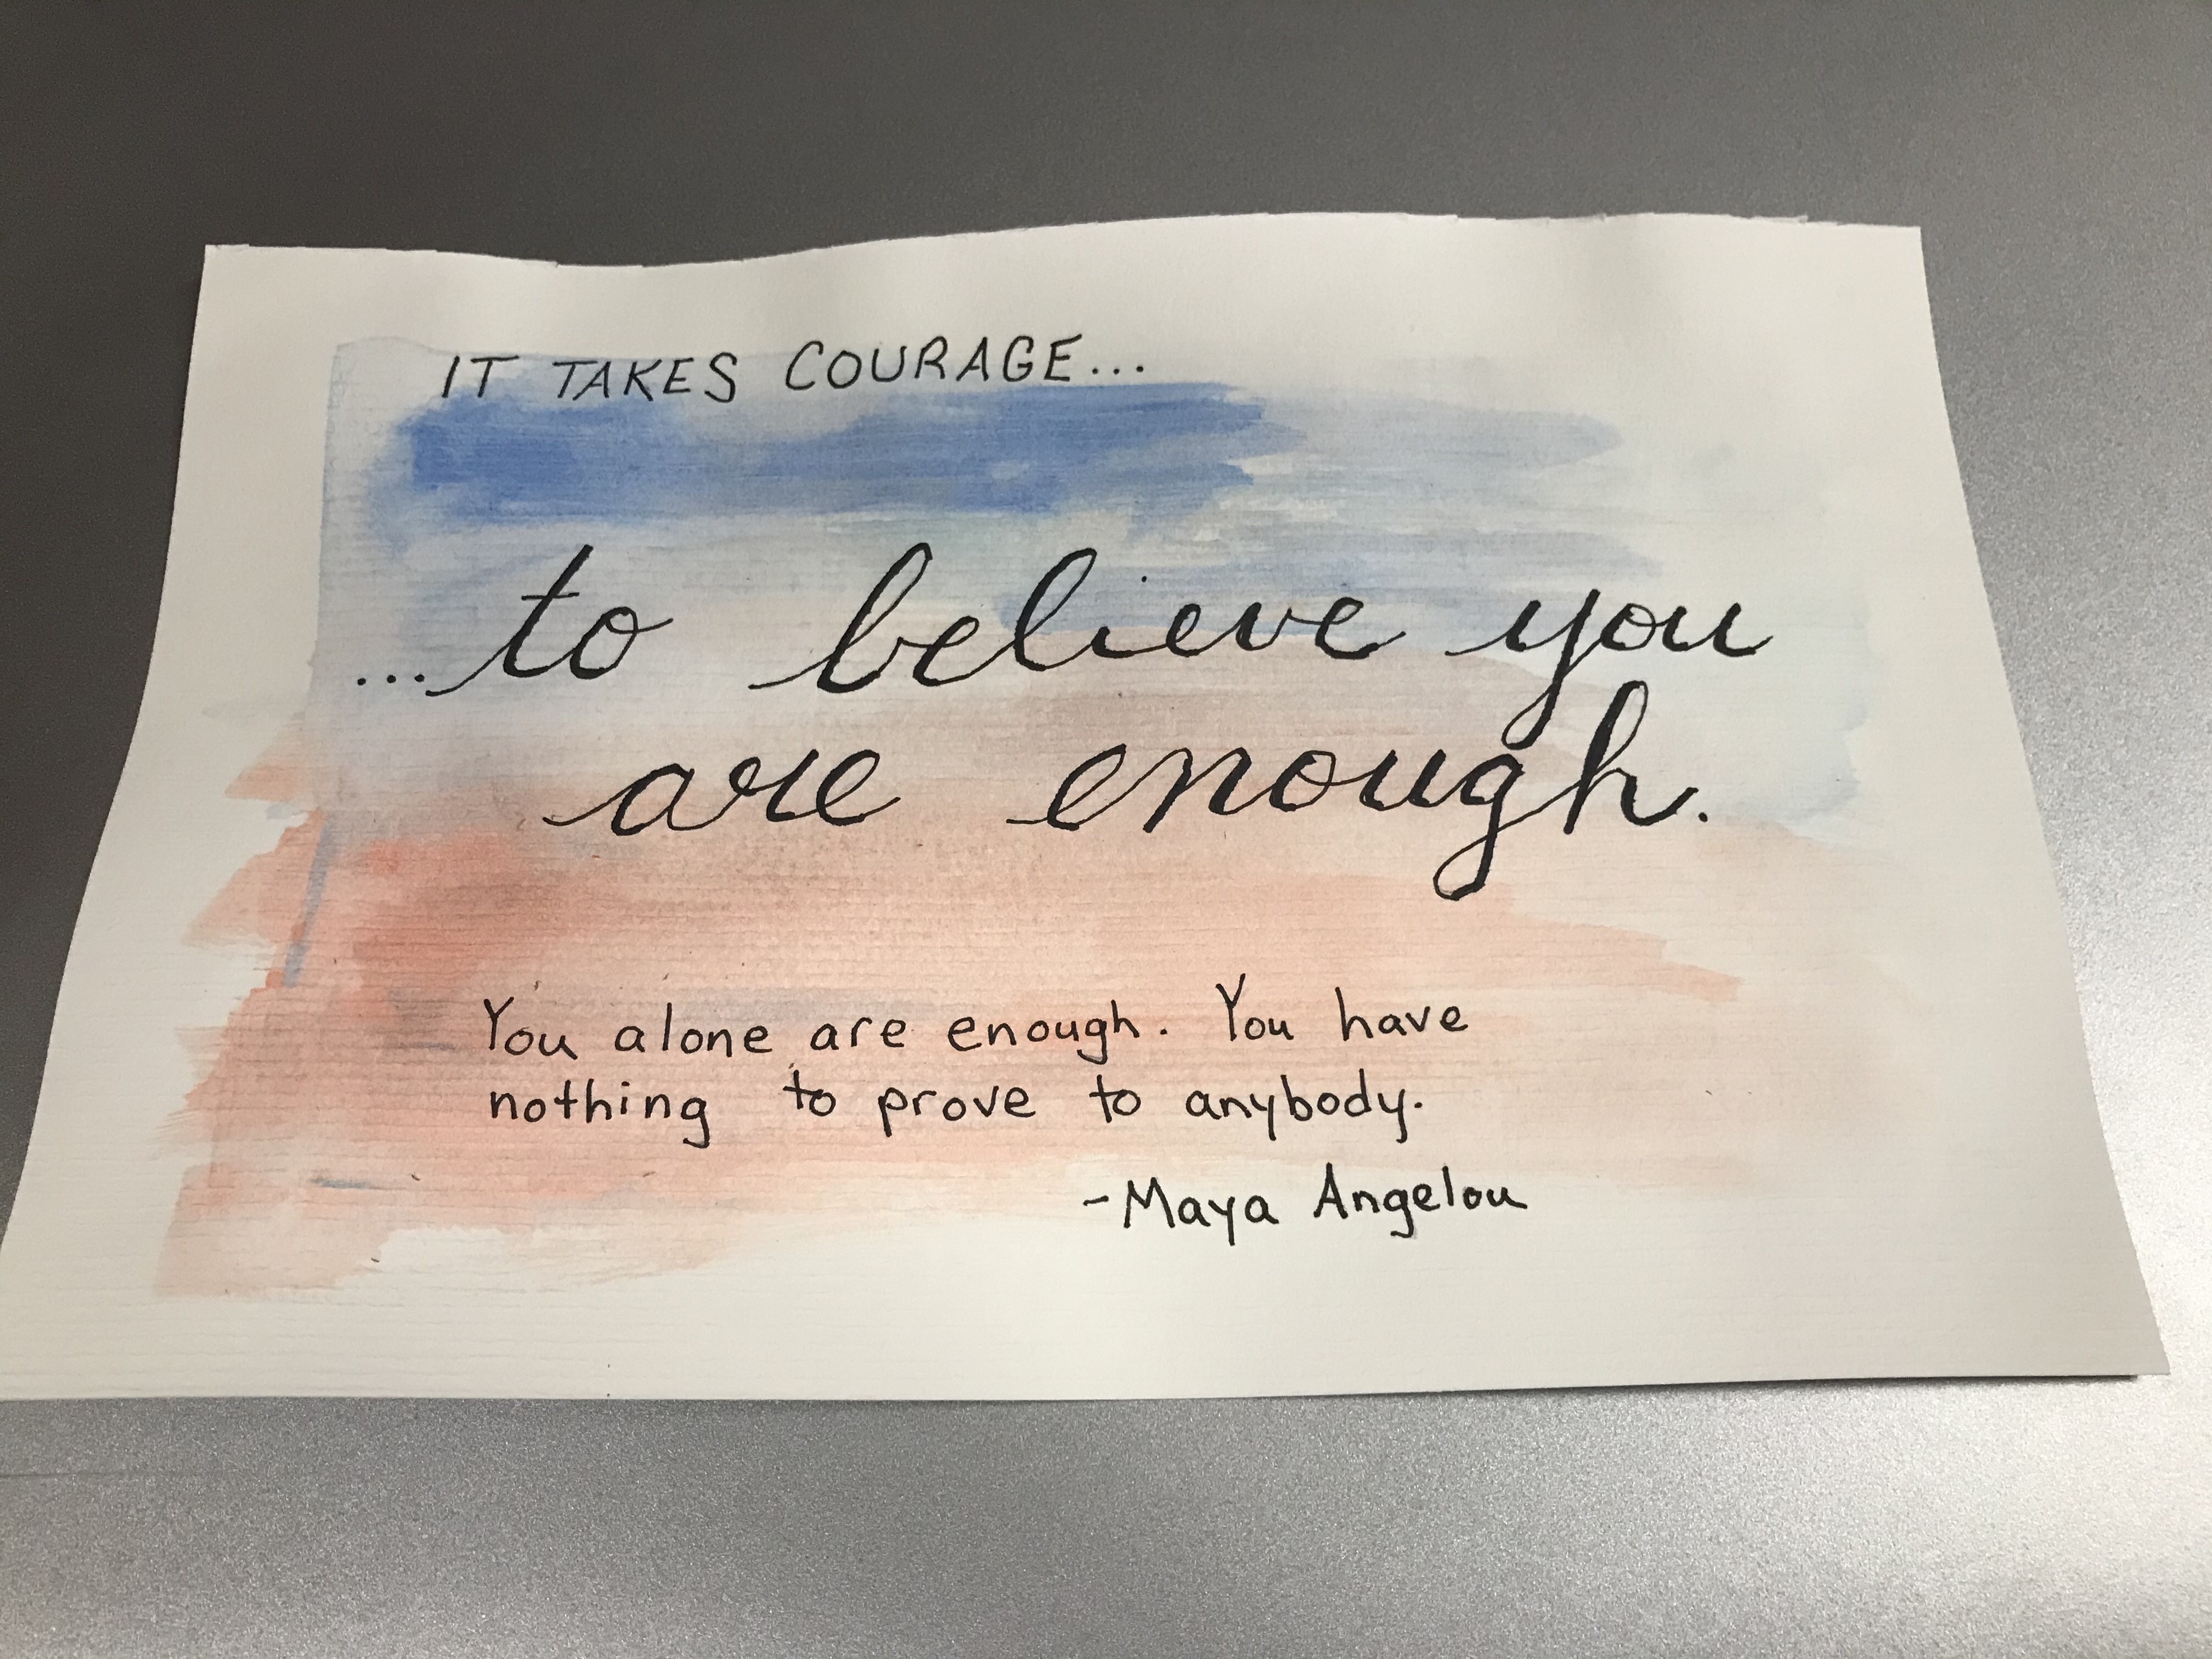 IT TAKES COURAGE...
...to believe you
are enough.
You alone are enough. You have
nothing to prove to anybody.
-Maya Angelou